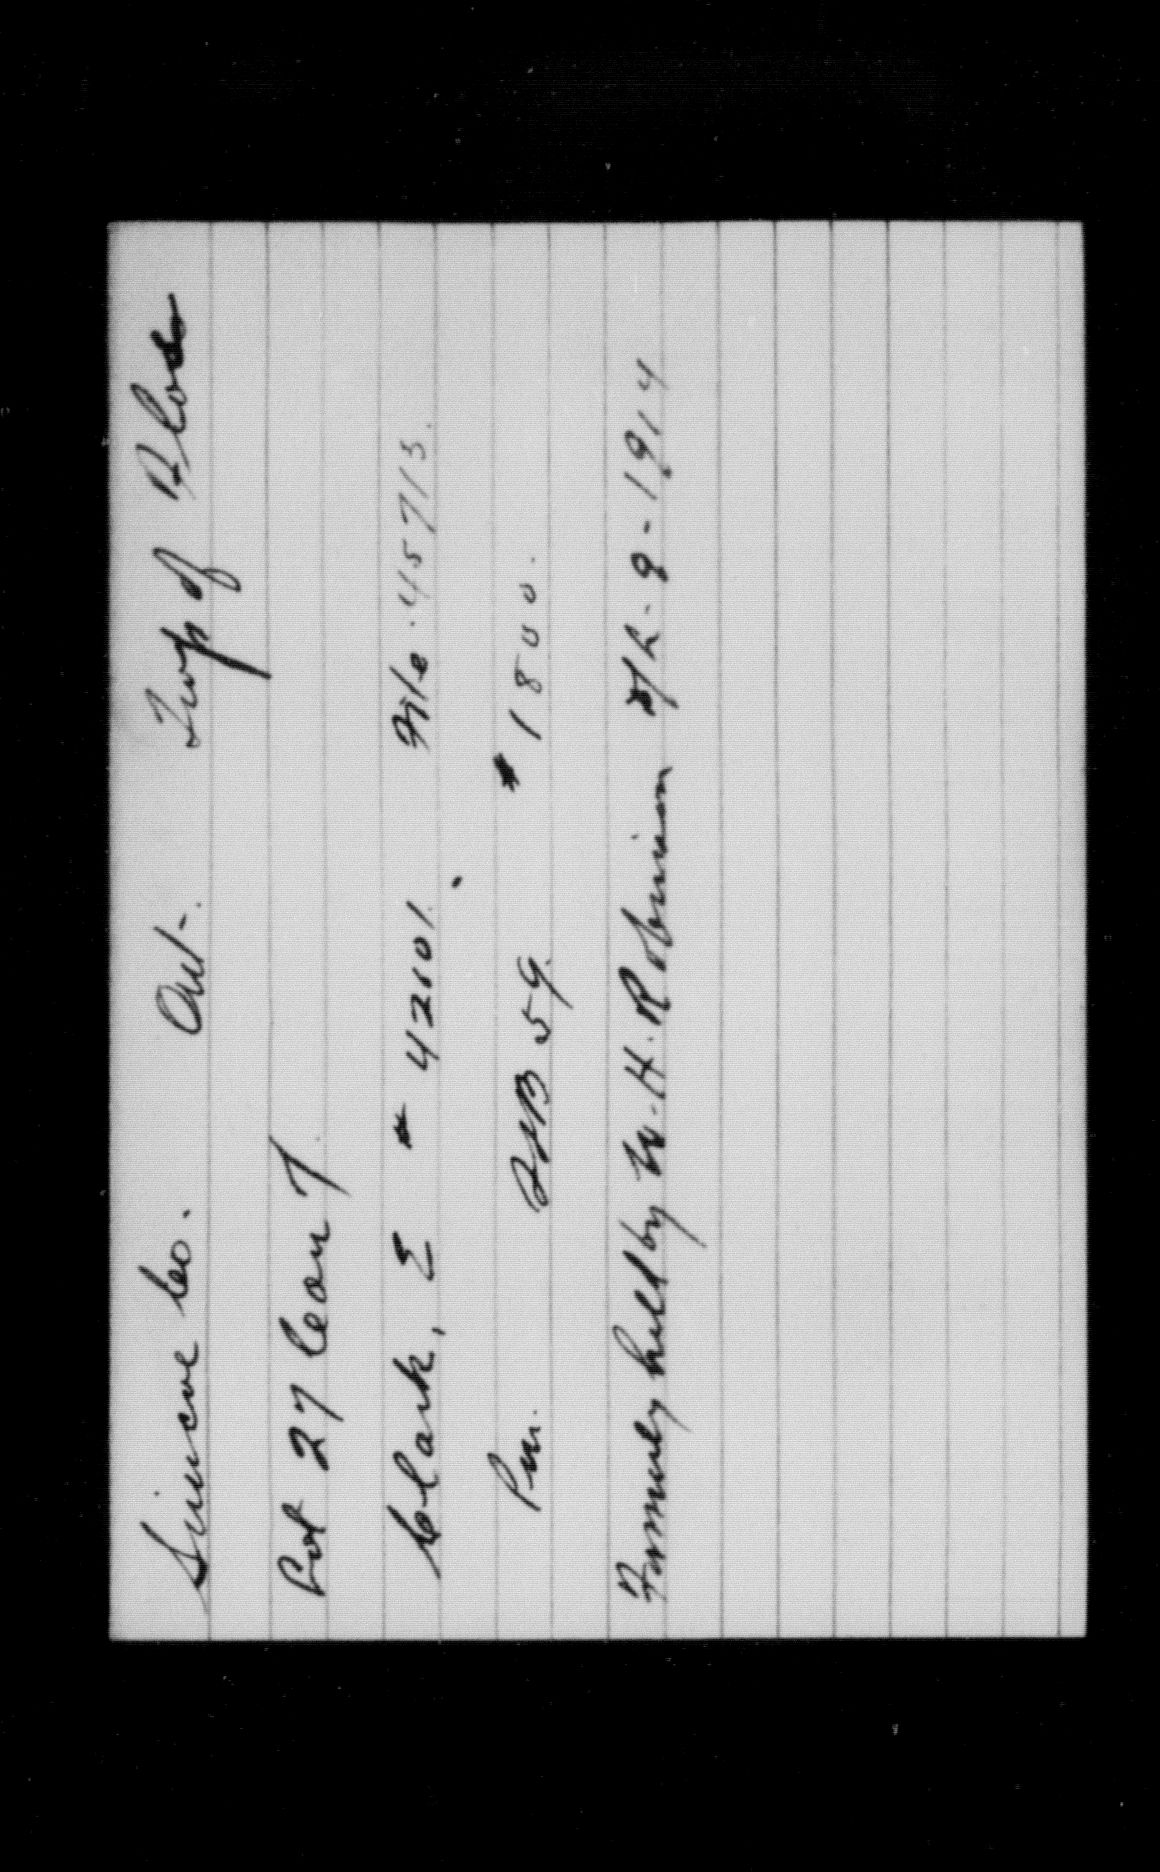 Simcoe Co. Ont. Twp of
Lot 27 Con 7
Clark, E # 42101. File. 45713.
Pm. 59. # 1800.
Formerly held by W. H. Robinson 9-1914